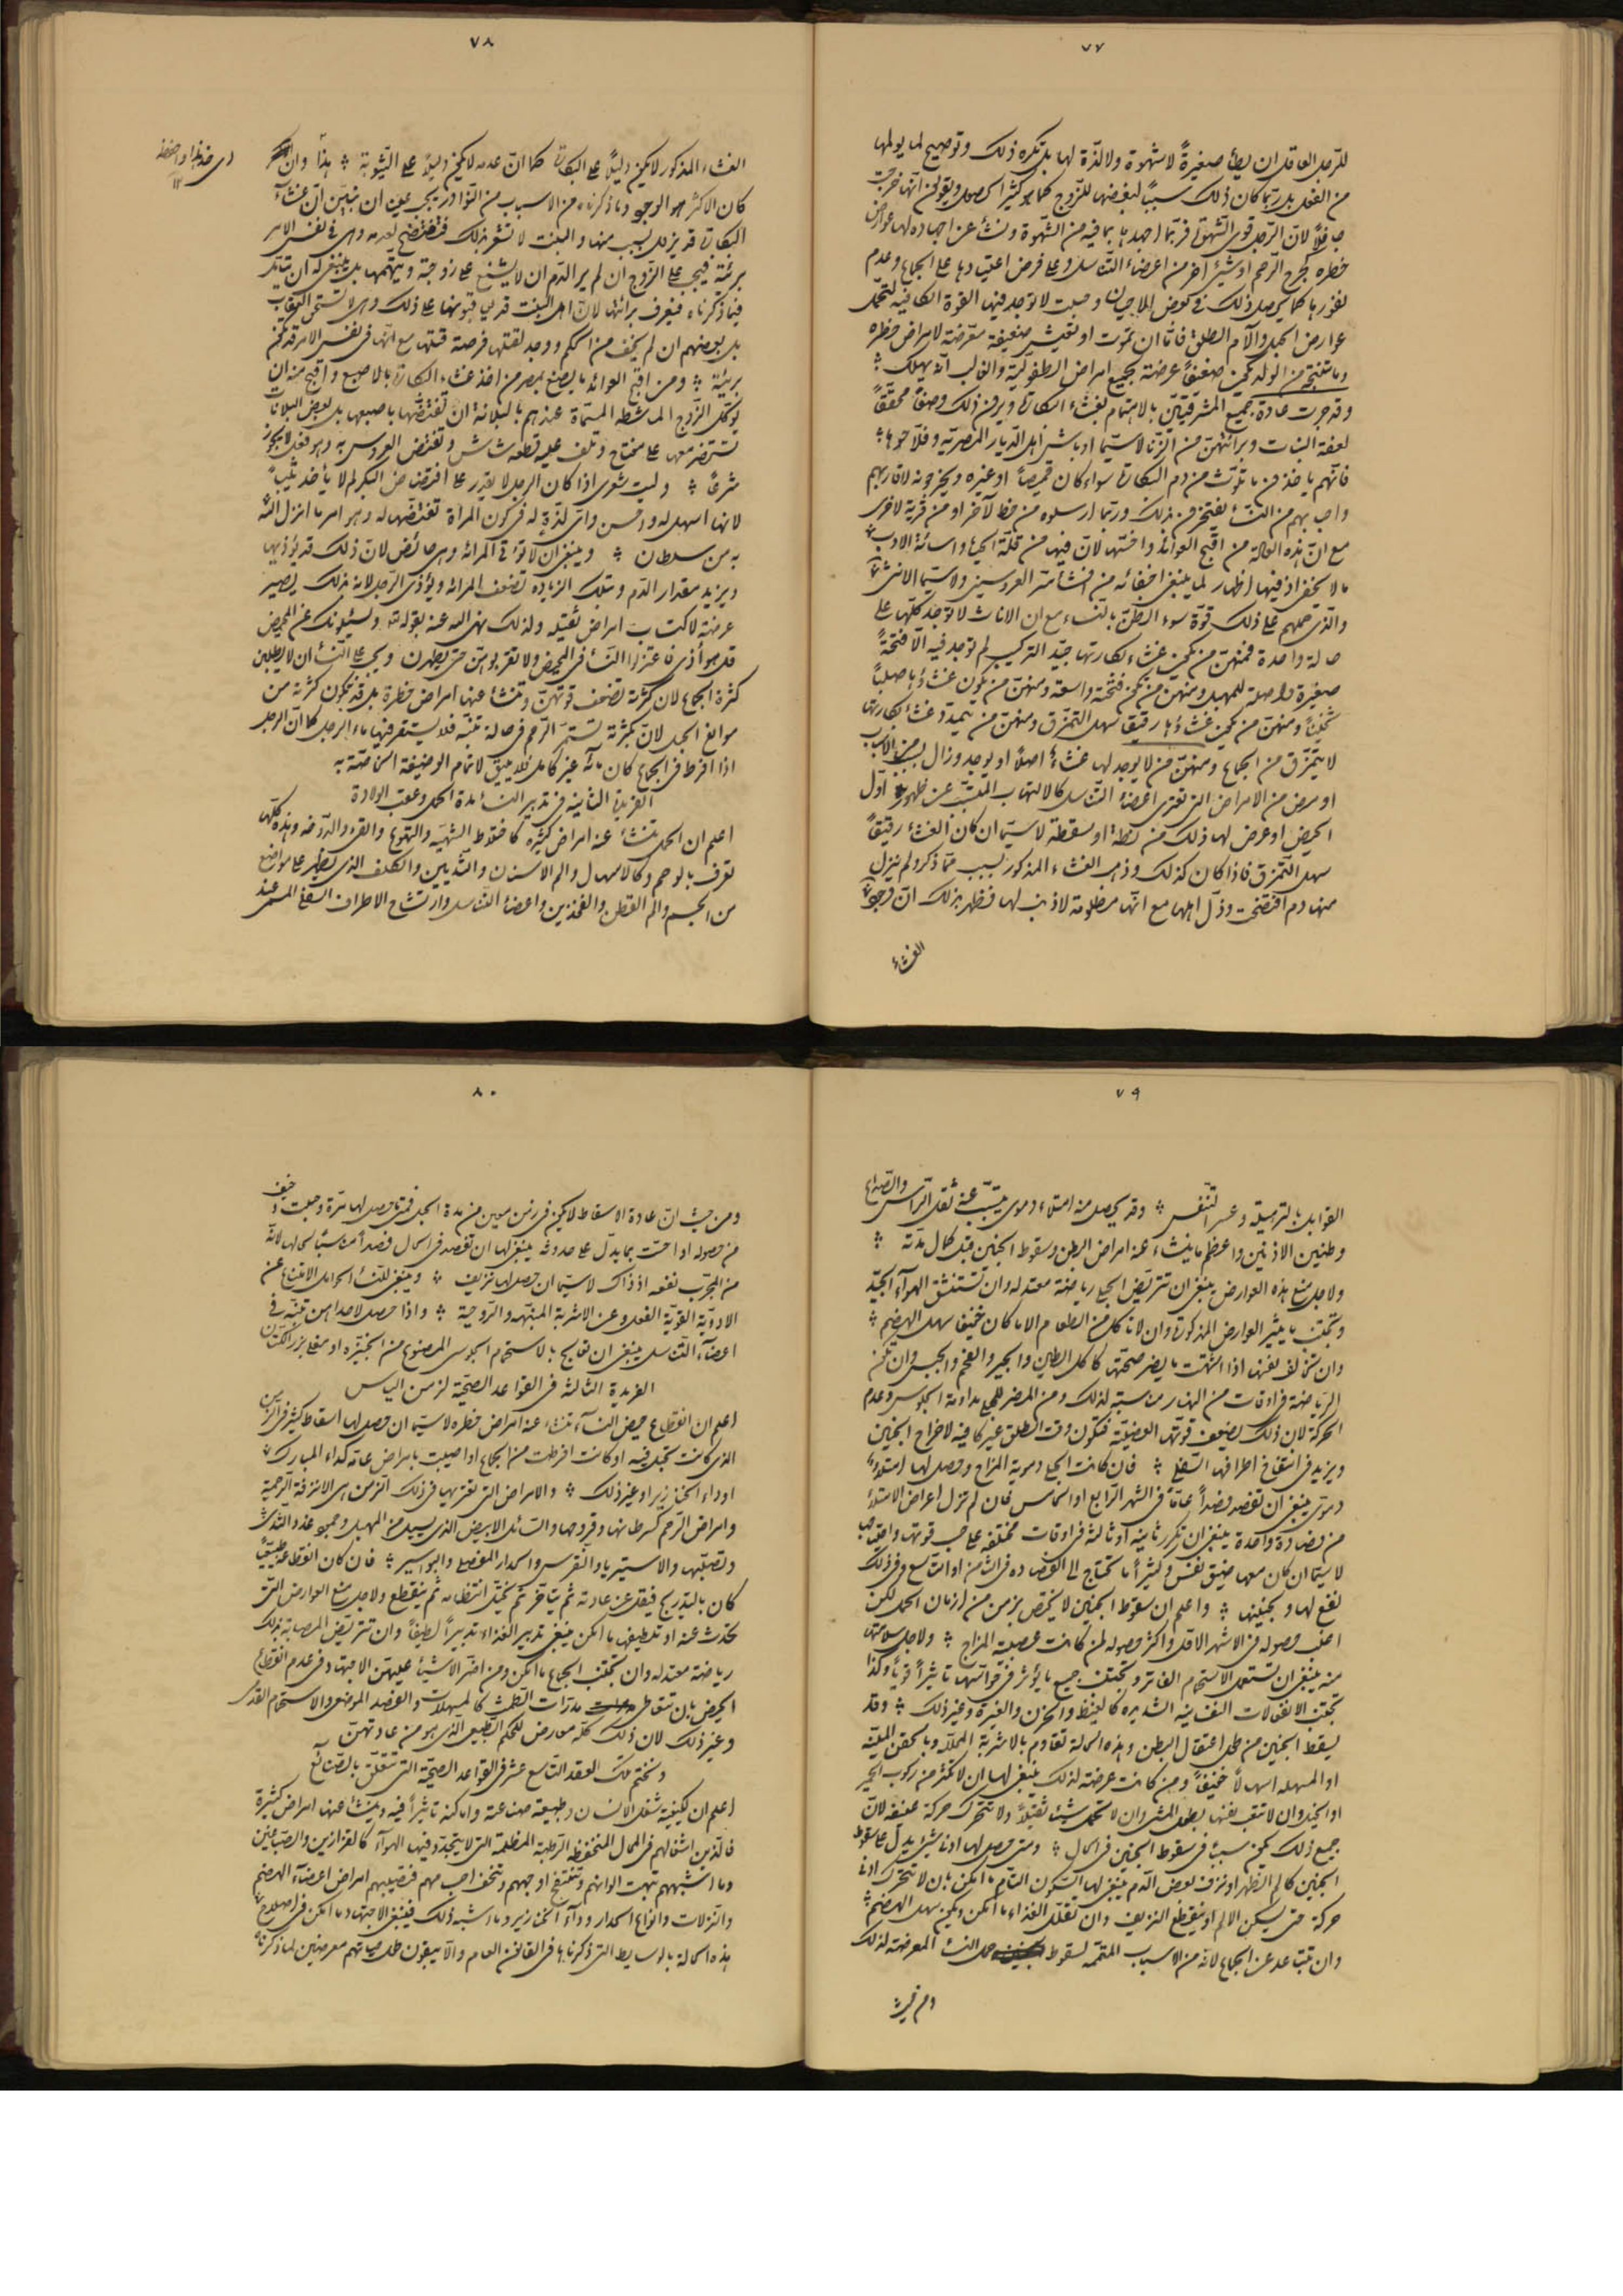 ٧٧
للرجل العاقل ان يطأ صغيرةً لا شهوة ولا لذّة لها بل تكره ذلك وتوضيح لما يولمها
من الفعل بل ربّما كان ذلك سبباً لبغضها للزوج كما هو كثيرا
لانّ الرّجل قوى الشهوة فربّما اجهدها بما فيه من الشّهوة ونشأ عن اجهاده لها عوارض
خطره كجرح الرّحم او شيئ اخر من اعضاء التّناسل وعلى فرض اعتيادها على الجماع وعدم
نفورها كما يحصل ذلك فى بعض الاحيان وحبلت لا توجد فيها القوة الكافية لتحمّل
عوارض الحبل وآلام الطلق فامّا ان تموت او تعيش ضعيفة متعرّضة لامراض خطره
وما تنتجه من الولد يكون ضعيفاً عرضة لجميع امراض الطفوليّة والغالب انّه يهلك
وقد جرت عادة جميع المشرقيّين بالاهتمام بغشاء البكارة ويرون ذلك وصفاً محقّقاً
لعفة البنات وبرائتهنّ من الزّنا لا سيّما اوباش اهل الدّيار المصرية وفلّاحوها
فانّهم ياخذون ما تلوّث من دم البكارة سواء كان قميصاً او غيره ويخرجونه لاقاربهم
واحبابهم من النساء يفتخرون بذلك وربّما ارسلوه من خط لآخر او من قرية لاخرى
مع انّ هذه العادة من اقبح العوائد واخسّها لانّ فيها من قلّة الحياء واسائة الادب
ما لا يخفى اذ فيها اظهار لما ينبغى اخفائه من العروسين ولا سيّما الانثى
والذى حملهم على ذلك قوّة سوء الظنّ بالنساء مع ان الاناث لا توجد كلّها على
حالة واحدة فمنهنّ من يكون غشاء بكارتها جيّد التركيب لم توجد فيه الّا فتحةً
صغيرة واصلة للمهبل ومنهنّ من تكون فتحته واسعة ومنهنّ من يكون غشاؤها صلباً
ثخيناً ومنهنّ من يكون غشاؤها رقيقا سهل التمزّق ومنهنّ من يتمدّد غشاء بكارتها
لا يتمزّق من الجماع ومنهنّ من لا يوجد لها غشاءٌ اصلاً او يوجد وزال لبعض الاسباب
او مرض من الامراض التى تعترى اعضاء التّناسل كالالتهاب المسبّب عن ظهور اوّل
الحيض او عرض لها ذلك من نطّة او سقطة لا سيّما ان كان الغشاء رقيقاً
سهل التمزق فاذا كان كذلك وذهب الغشاء المذكور بسبب ممّا ذكر ولم ينزل
منها دم افتضحت وذلّ اهلها مع انّها مظلومة لا ذنب لها فظهر بذلك انّ وجود
الغشاء
٧٨
الغشاء المذكور لا يكون دليلاً على البكارة كما انّ عدمه لا يكون دليلاً على الثّيوبة هذا وان
كان الاكثر هو الوجود وما ذكرناه من الاسباب من النّوادر يجب علينا ان نبيّن انّ غشاء
البكارة قد يزول بسبب منها والبنت لا تشعر بذلك فتفتضح لعدمه وهى فى نفس الامر
بريئة فيجب على الزّوج ان لم ير الدّم ان لا يشنع على زوجته ويتّهمها بل ينبغى له ان يتأمّل
فيما ذكرناه فيعرف برائتها لانّ اهل البنت قد على ذلك وهى لا تستحق العقاب
بل بعضهم ان لم يخف من الحاكم ووجد لقتلها فرصة قتلها مع انّها فى نفس الامر قد تكون
بريئة ومن اقبح العوائد ما يصنع بمصر من اخذ غشاء البكارة بالاصبع واقبح منه ان
يوكّل الزّوج الماشطة المسمّاة عندهم بالبلانة ان تفتضّها باصبعها بل بعض البلانات
تستحضر معها على مفتاح وتلف عليه قطعة شاش وتفتض العروس به وهو فعل لا يجوز
شرعاً وليت شعرى اذا كان الرجل لا يقدر على افتضاض البكر لم لا يأخذ ثيّباً
لانها اسهل له واحسن واىّ لذّة له فى كون المرأة تفتضها له وهو امر ما انزل الله
به من سلطان وينبغى ان لا تؤتى المرأة وهى حائض لانّ ذلك قد يؤذيها
ويزيد مقدار الدّم وتلك الزياده تضعف المرأة ويؤذى الرّجل لانه بذلك يصير
عرضة لاكتساب امراض ثقيله ولذلك نهى الله عنه بقوله ويسئلونك عن المحيض
قل هو أذى فاعتزلوا النساء فى المحيض ولا تقربوهنّ حتى يطهرن ويجب على النساء ان لا يطلبن
كثرة الجماع لان كثرته تضعف قوتهنّ وتنشأ عنها امراض خطرة بل قد تكون كثرته من
موانع الحبل لانّ بكثرته تستمرّ الرّحم فى حالة تنبّه فلا يستقر فيها ماء الرجل كما انّ الرجل
اذا افرط فى الجماع كان مائه غير كامل فلا يليق لاتمام الوظيفة المختصّة به
الفريدة الثانية فى تدبير النساء مدة الحمل وعقب الولادة
اعلم ان الحمل تنشأ عنه امراض كثيره كافراط الشهيّه والتهوع والقئ والدّوخه وهذه كلّها
تعرف بالوحم وكالاسهال والم الاسنان والثديين والكلف الذى يظهر على مواضع
من الجسم والم القطن والفخذين واعضاء التّناسل وارتشاح الاطراف السفلى المسمى عند
٧٩
القوابل بالترهيل وعسر التّنفس وقد يحصل منه امتلاء دموى يتسبّب عنه ثقل الرّاس والصّداع
وطنين الاذنين واعظم ما ينشاء عنه امراض البطن وسقوط الجنين قبل كمال مدّته
ولاجل منع هذه العوارض ينبغى ان تتريّض الحبلى رياضة معتدله وان تستنشق الهواء الجيّد
وتجتنب ما يثير العوارض المذكورة وان لا تاكل من الطعام الا ما كان خفيفا سهل الهضم
وان تخالف نفسها اذا اشتهت ما يضر صحّتها كاكل الطين والجير والفحم والجبس وان تكون
الرّياضة فى اوقات من النهار مناسبة لذلك ومن المضر للحبلى مداومة الجلوس وعدم
الحركة لان ذلك يضعف قوتها العضليّة فتكون وقت الطلق غير كافيه لاخراج الجنين
ويزيد فى انتفاخ اطرافها السّفلى فان كانت الحبلى دموية المزاج وحصل لها امتلاء
دموىّ ينبغى ان تفصد فصداً عامّاً فى الشهر الرّابع او الخامس فان لم تزل اعراض الامتلاء
من فصادة واحدة ينبغى ان تكرر ثانية او ثالثة فى اوقات مختلفه على حسب قوتها واحتياجها
لا سيّما ان كان معها ضيق نفس وكثيراً ما تحتاج الى الفصاده فى الثامن او التاسع وفى ذلك
نفع لها ولجنينها واعلم ان سقوط الجنين لا يختص بزمن من ازمان الحمل لكن
اغلب حصوله فى الاشهر الاول واكثر حصوله لمن كانت عصبية المزاج ولاجل سلامتها
منه ينبغى ان تستعمل الاستحمام الفاتر وتجتنب جميع ما يؤثر فى حواسّها تاثيراً قويّاً وكذا
تجتنب الانفعالات النفسانية الشديده كالغيظ والحزن والغيرة وغير ذلك وقد
يسقط الجنين من طول اعتقال البطن وهذه الحالة تقاوم بالاشربة المحلّلة وبالحقن المليّنه
او المسهله اسهالاً خفيفاً ومن كانت عرضة لذلك ينبغى لها ان لا تكثر من ركوب الحمير
او الخيل وان لا تتعب نفسها بطول المشى وان لا تحمل شيئا ثقيلاً ولا تتحرّك حركة عنيفة لانّ
جميع ذلك يكون سبباً فى سقوط الجنين فى الحال ومتى حصل لها ادنى شيئ يدلّ على سقوط
الجنين كالم الظهر او نزف بعض الدّم ينبغى لها السّكون التّام ما امكن بان لا تتحرّك ادنى
حركة حتى يسكن الالم او ينقطع النزيف وان تقلّل الغذاء ما امكن ويكون سهل الهضم
وان تتباعد عن الجماع لانّه من الاسباب المتمّمه لسقوط حمل النساء المعرضة لذلك
ومن حيث
٨٠
ومن حيث انّ عادة الاسقاط لا يكون فى زمن معين من مدة الحبل فمتى حصل لها مرّة وحبلت وخيف
من حصوله او احسّت بما يدلّ على حدوثه ينبغى لها ان تفصد فى الحال فصداً مناسباً لحالها لانّه
من المجرّب نفعه اذ ذاك لا سيّما ان حصل لها نزيف وينبغى للنساء الحوامل الامتناع عن
الادويّة القويّة الفعل وعن الاشربة المنبّهه والرّوحية واذا حصل لاحداهن تنبّه فى
اعضاء التّناسل ينبغى ان تعالج بالاستحمام الجلوسى المصنوع من الخبيّزه او مغلى بزر الكتّان
الفريدة الثالثة فى القواعد الصحّية لزمن الياس
اعلم ان انقطاع حيض النساء تنشاء عنه امراض خطره لا سيّما ان حصل لها اسقاط كثير فى الزّمن
الذى كانت تحبل فيه او كانت افرطت من الجماع او اصيبت بامراض عامّه كداء المبارك
او داء الخنازير او غير ذلك والامراض التى تعتريها فى ذلك الزمن هى الانزفة الرّحمية
وامراض الرّحم كسرطانها وقروحها والسّائل الابيض الذى يسيل من المهبل وجميع غدد الثدى
وتصلّبها والاستيريا والنّقرس واحدار المفصلى والبواسير فان كان انقطاعه طبيعيّاً
كان بالتّدريج فيقل عن عادته ثم يتاخر ثم يختلّ انتظامه ثم ينقطع ولاجل منع العوارض التى
تحدث عنه او تلطيفها ما امكن ينبغى تدبير الغذاء تدبيراً لطيفاً وان تتريّض المصابة بذلك
رياضة معتدله وان تجتنب الجماع ما امكن ومن اضرّ الاشياء عليهنّ الاجتهاد فى عدم انقطاع
الحيض بان تتعاطى مدرّات الطّمث كالمسهلات والفصد الموضعى والاستحمام القدمى
وغير ذلك لان ذلك كلّه معارض للحكم الطّبيعى الّذى هو من عادتهنّ
ونختم لك العقد التاسع عشر فى القواعد الصحّية التى تتعلّق بالصّنائع
اعلم ان لكيفية شغل الانسان وطبيعة صناعته واماكنه تاثيراً فيه وينشأ عنها امراض كثيرة
فالّذين اشغالهم فى المحال المنخفظه الرّطبة المظلمة التى لا يتجدّد فيها الهواء كالقزازين والصّبّاغين
وما اشبههم تبهت الوانهم وتنتفخ اوجههم وتنحف اجسامهم فتصيبهم امراض اعضاء الهضم
والنّزلات وانواع الحدار وداء الخنازير وما اشبه ذلك فينبغى الاجتهاد ما امكن فى اصلاح
هذه الحالة بالوسايط التى ذكرناها فى القانون العام والّا يبقون طول حياتهم معرضين لما ذكرناه